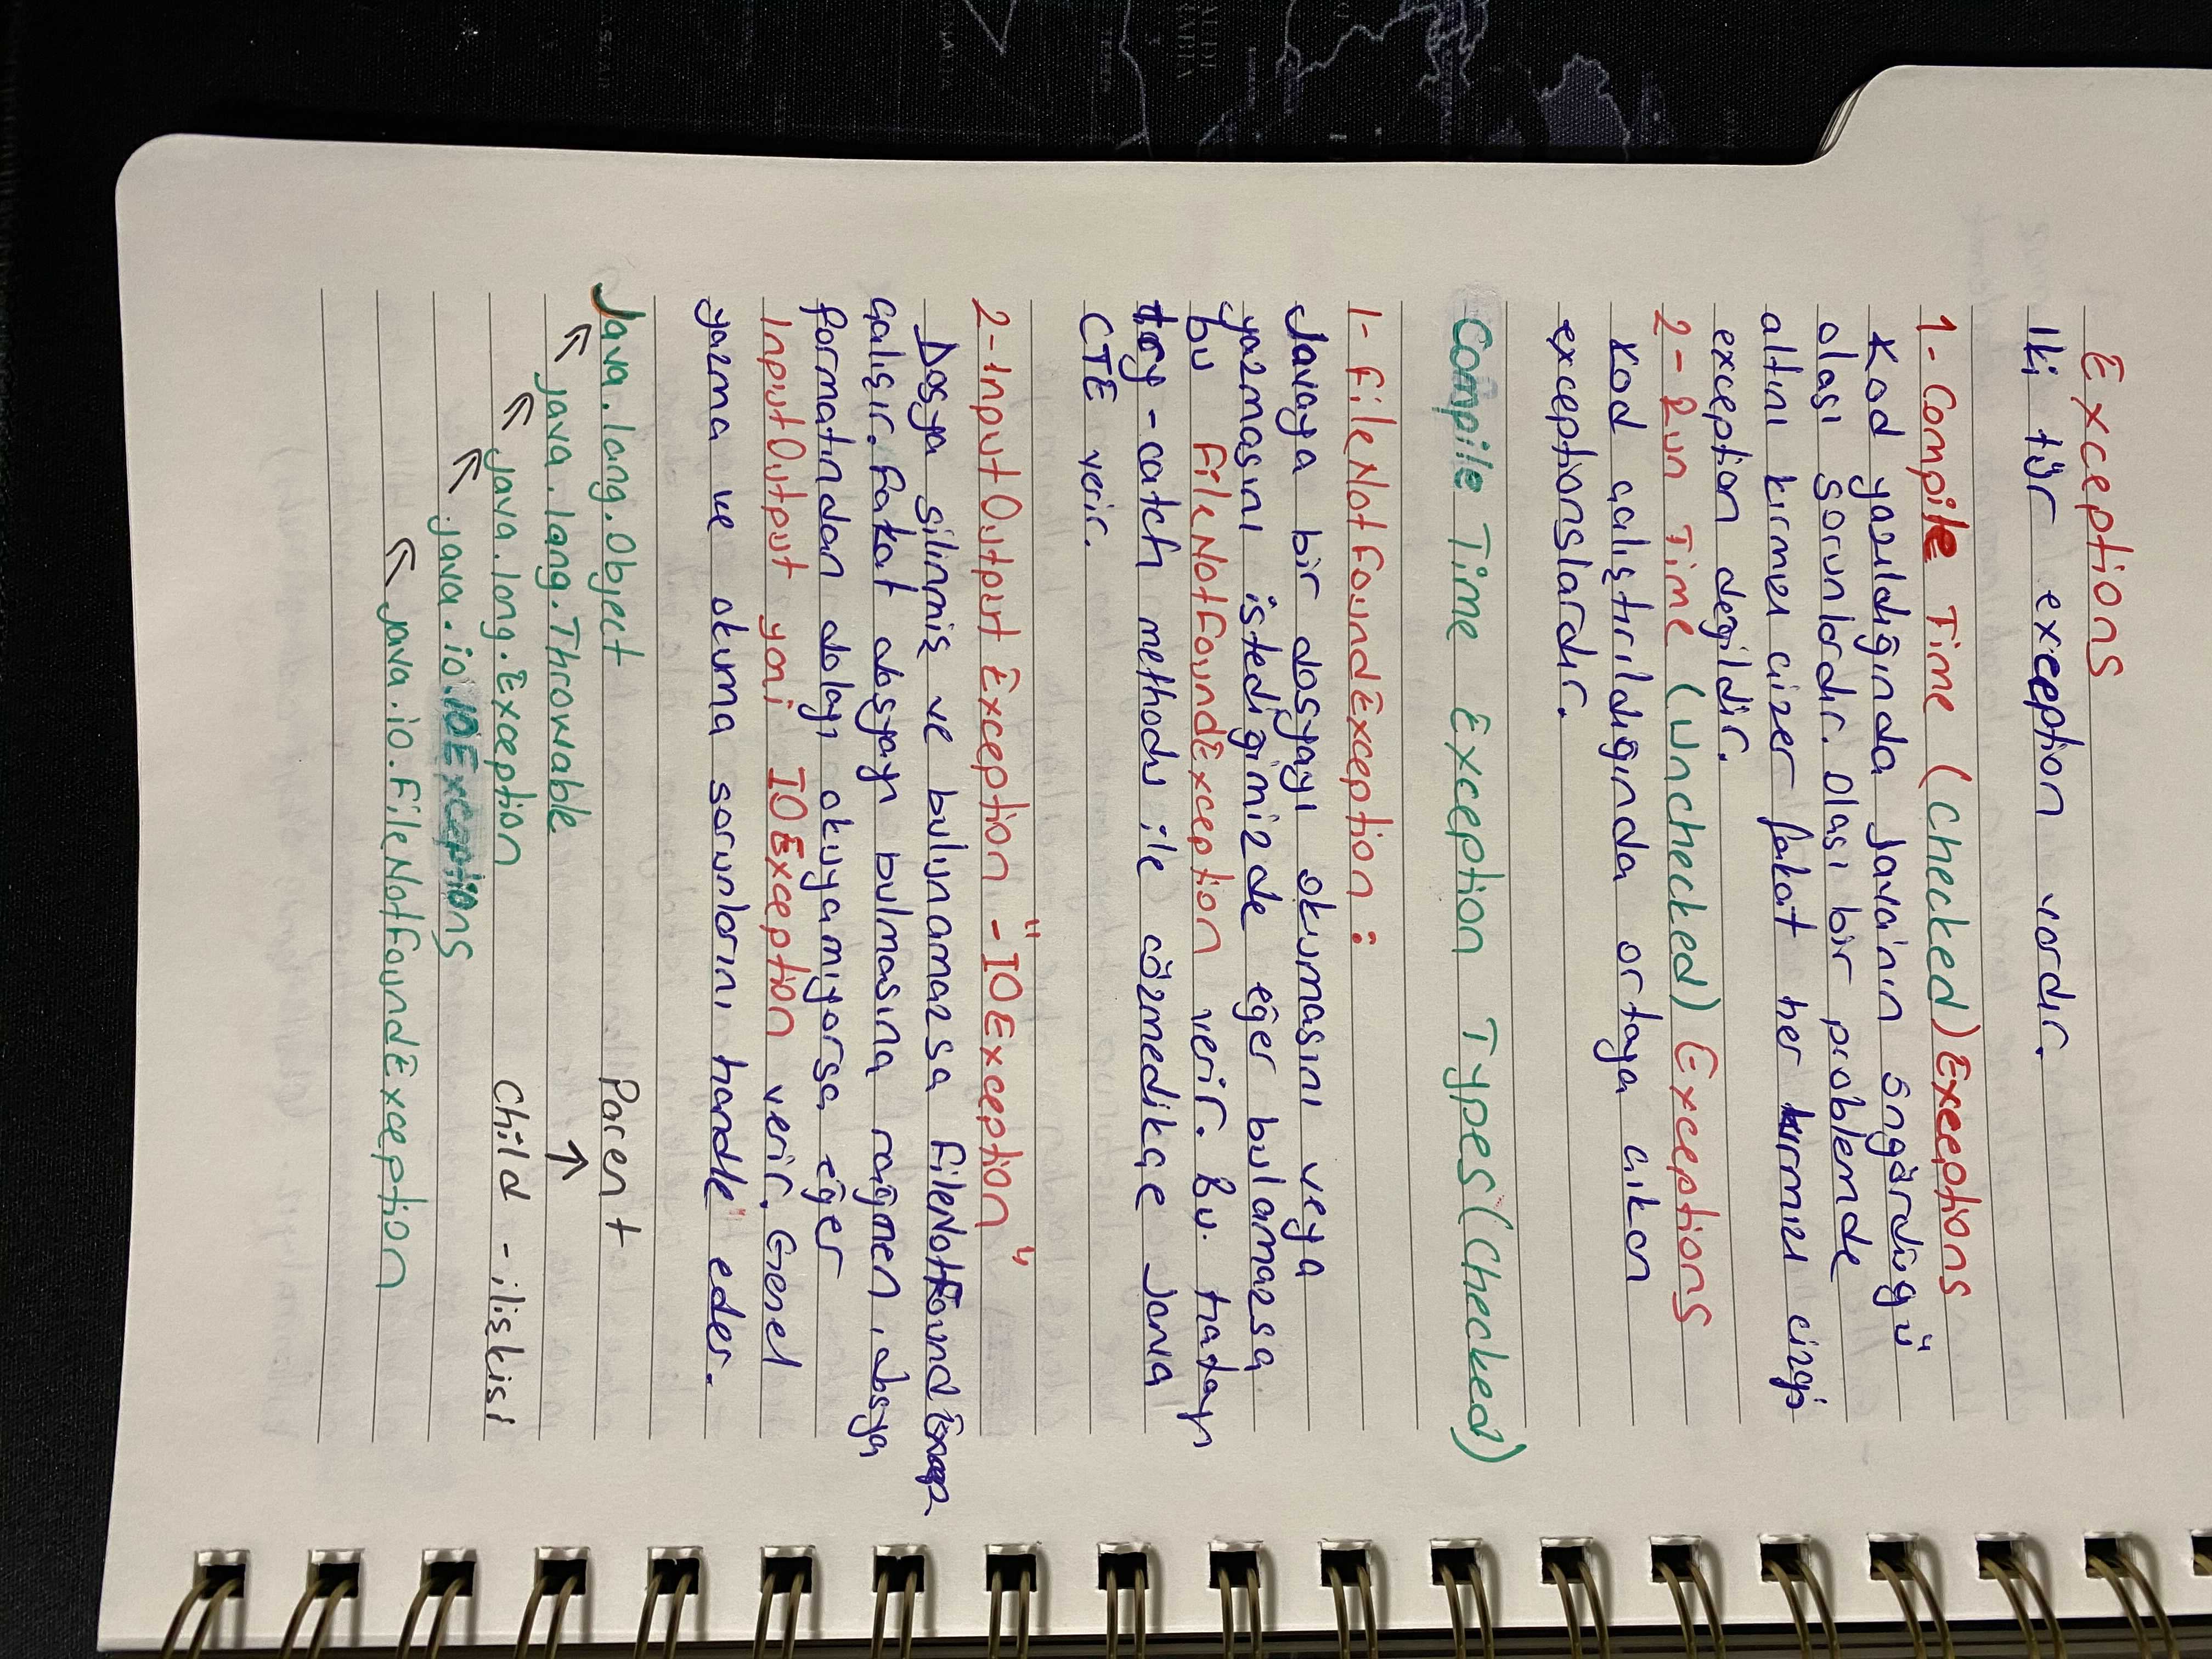 Exceptions
Iki tür exception vardır.
1- Compile Time (Checked) Exceptions
Kod yazıldığında Java'nın öngördügü
olası sorunlardır. Olası bir problemde
altını kırmızı çizer fakat her kırmızı cizgi
exception degildir.
2- Run Time (Unchecked) Exceptions
Kod çalıştırıldığında ortaya çıkan
exceptionslardır.
Compile Time Exception Types (Checked)
1- FileNotFoundException :
Javaya bir dosyayı okumasını veya
yazmasını istedigimizde eğer bulamazsa
bu FileNotFoundException verir. Bu hatayı
try-catch methodu ile cözmedikçe Java
CTE verir.
2-InputOutput Exception - "IOException"
Dosya silinmiş ve bulunamazsa FileNotFound Excep
çalışır. Fakat dosyayı bulmasına rağmen, dosya
formatından dolayı okuyamıyorsa eğer
InputOutput yani IOException verir. Genel
yazma ve okuma sorunlarını handle" eder.
Java.lang.Object Parent
↖ java.lang.Throwable ↑
↖ java.lang.Exception Child - ilişkisi
↖ java.io.IOExceptions
↖ java.io.FileNotFoundException